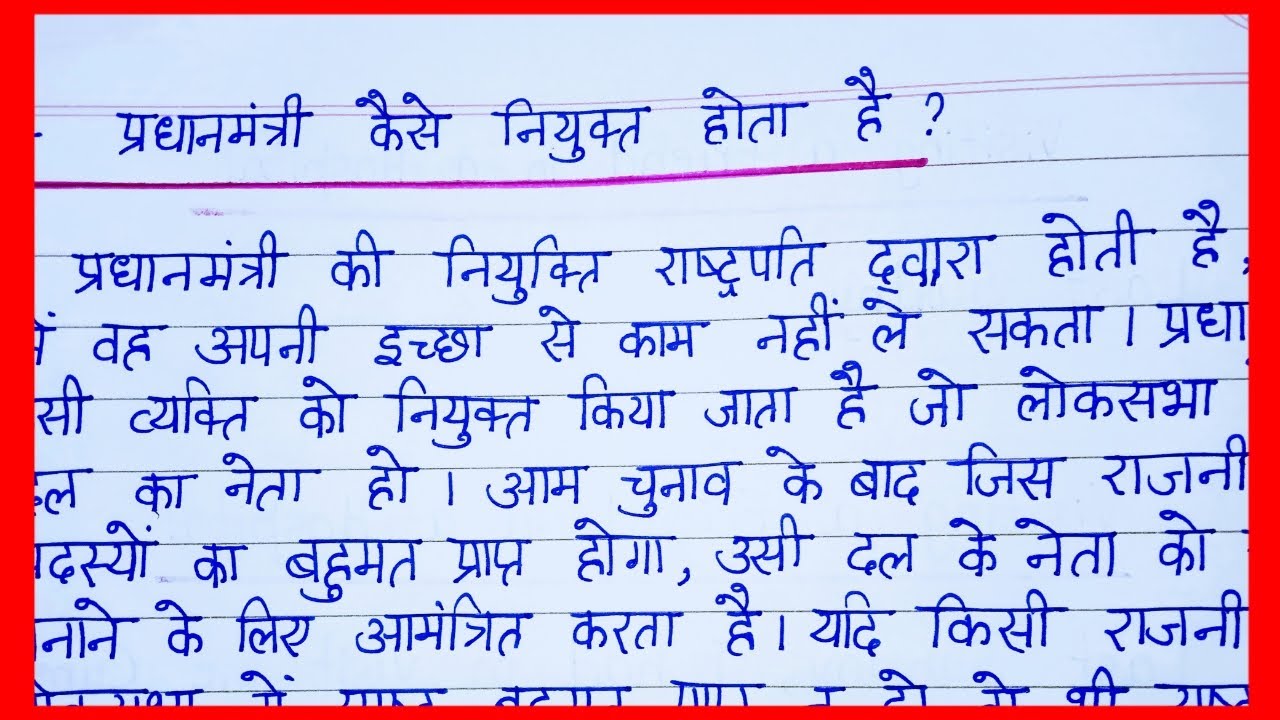 - प्रधानमंत्री कैसे नियुक्त होता है ?
प्रधानमंत्री की नियुक्ति राष्ट्रपति द्वारा होती है,
वह अपनी इच्छा से काम नहीं ले सकता । प्रधा
सी व्यक्ति को नियुक्त किया जाता है जो लोकसभा
का नेता हो । आम चुनाव के बाद जिस राजनी
दस्यों का बहुमत प्राप्त होगा, उसी दल के नेता को
नाने के लिए आमंत्रित करता है। यदि किसी राजनी